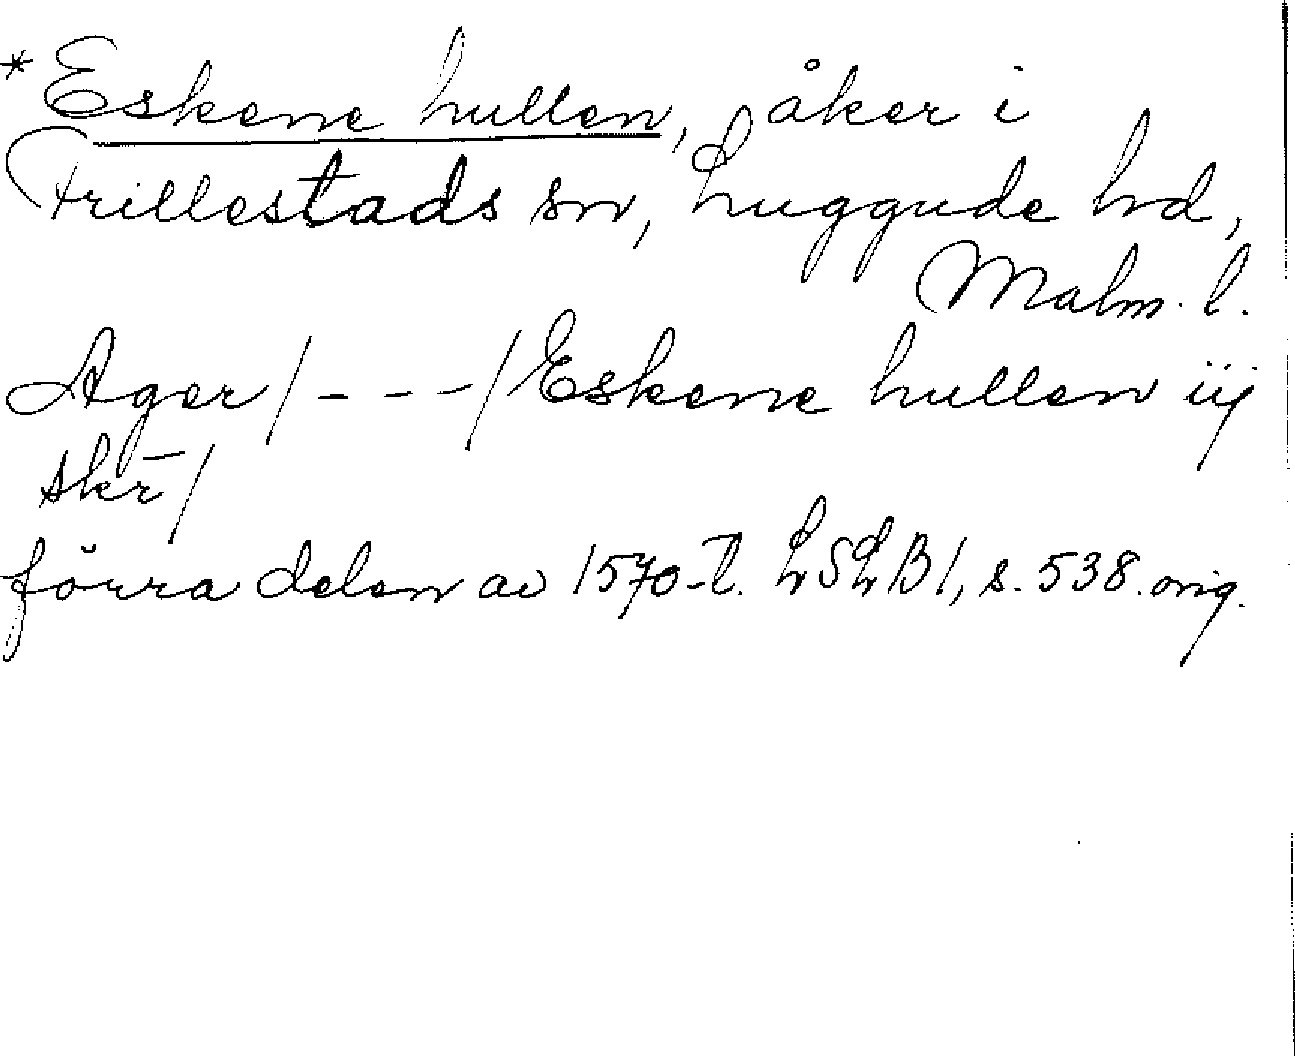 *Eskene hullen, åker i
Frillestads sn, Luggude hd,
Malm. l.
Ager / - - - / Eskene hullen iij
skr̄ /
förra delen av 1570-t. LSLB 1, s. 538. orig.